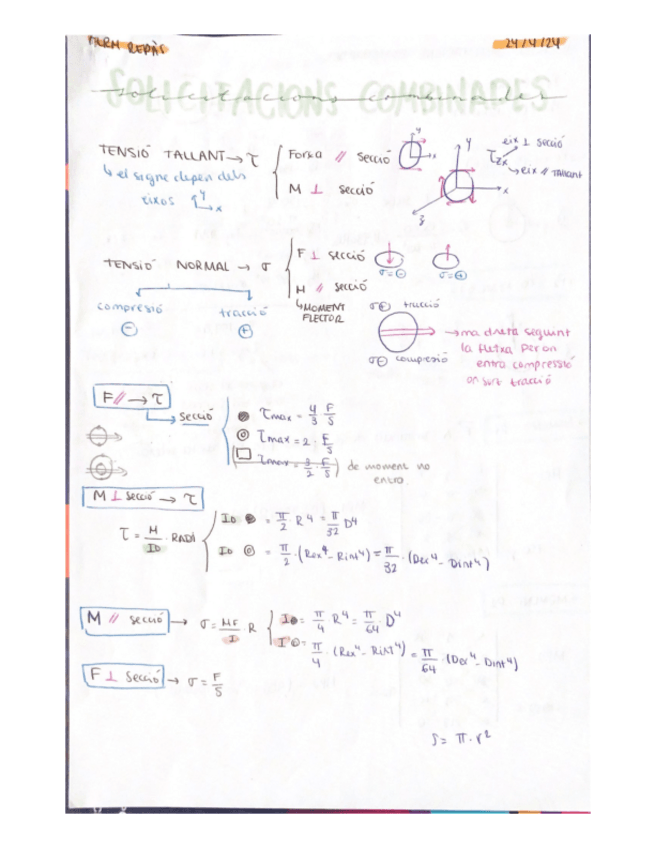 MERM REPÀS
24/4/24
SOLICITACIONS COMBINADES
solicitacions combinades
TENSIÓ TALLANT → τ
Força // secció
M ⊥ secció
↳ el signe depen dels
eixos
y
x
y
x
y
x
z
τzx
eix ⊥ secció
eix // TALLANT
TENSIÓ NORMAL → σ
F ⊥ secció
σ = ⊖
σ = ⊕
M // secció
↳ MOMENT
FLECTOR
compressió
⊖
tracció
⊕
σ⊕ tracció
σ⊖ compressió
→ ma dreta seguint
la fletxa per on
entra compressió
on surt tracció
F // → τ
↳ secció
τmax = 4/3 F/S
τmax = 2 · F/S
τmax = 3/2 · F/S
de moment no
entra.
M ⊥ secció → τ
τ = M/I0 · RADI
I0 ● = π/2 R⁴ = π/32 D⁴
I0 ◎ = π/2 · (Rex⁴ - Rint⁴) = π/32 · (Dex⁴ - Dint⁴)
M // secció → σ = MF/I · R
I ● = π/4 R⁴ = π/64 · D⁴
I ◎ = π/4 · (Rex⁴ - Rint⁴) = π/64 · (Dex⁴ - Dint⁴)
F ⊥ secció → σ = F/S
S = π · r²